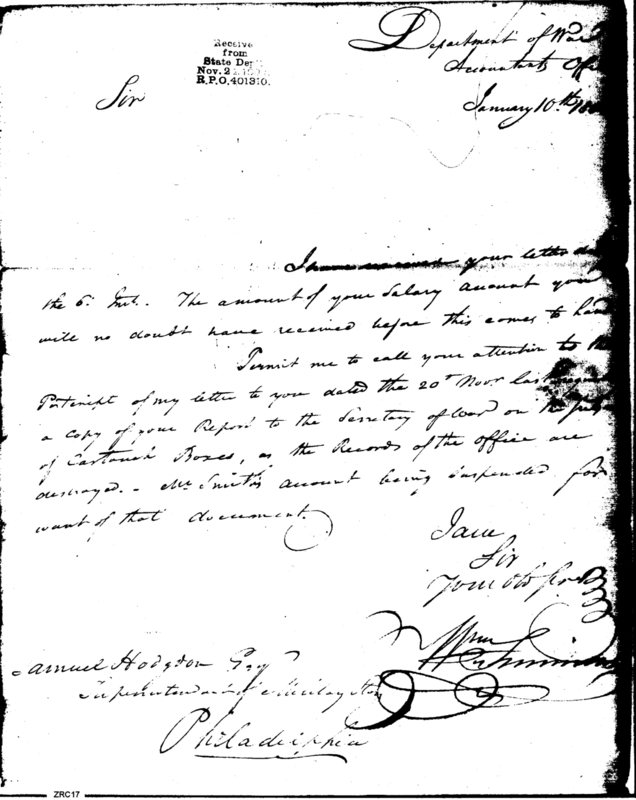 Department of War
Accountants Office
January 10th
Receive
from
State Dep
Nov. 22
R.P.O. 401310.
Sir
I have received your letter
the 6th Inst. The amount of your Salary account you
will no doubt have received before this comes to hand
Permit me to call your attention to the
Postscript of my letter to you dated the 20th Novr last
a copy of your Report to the Secretary of War on the
of Cartouch Boxes, as the Records of the Office are
destroyed. - Mr Smith's account being suspended for
want of that document.
I am
Sir
Your Ob Serv
Wm Simmons
Samuel Hodgdon Esqr
Superintendent of Military Stores
Philadelphia
ZRC17